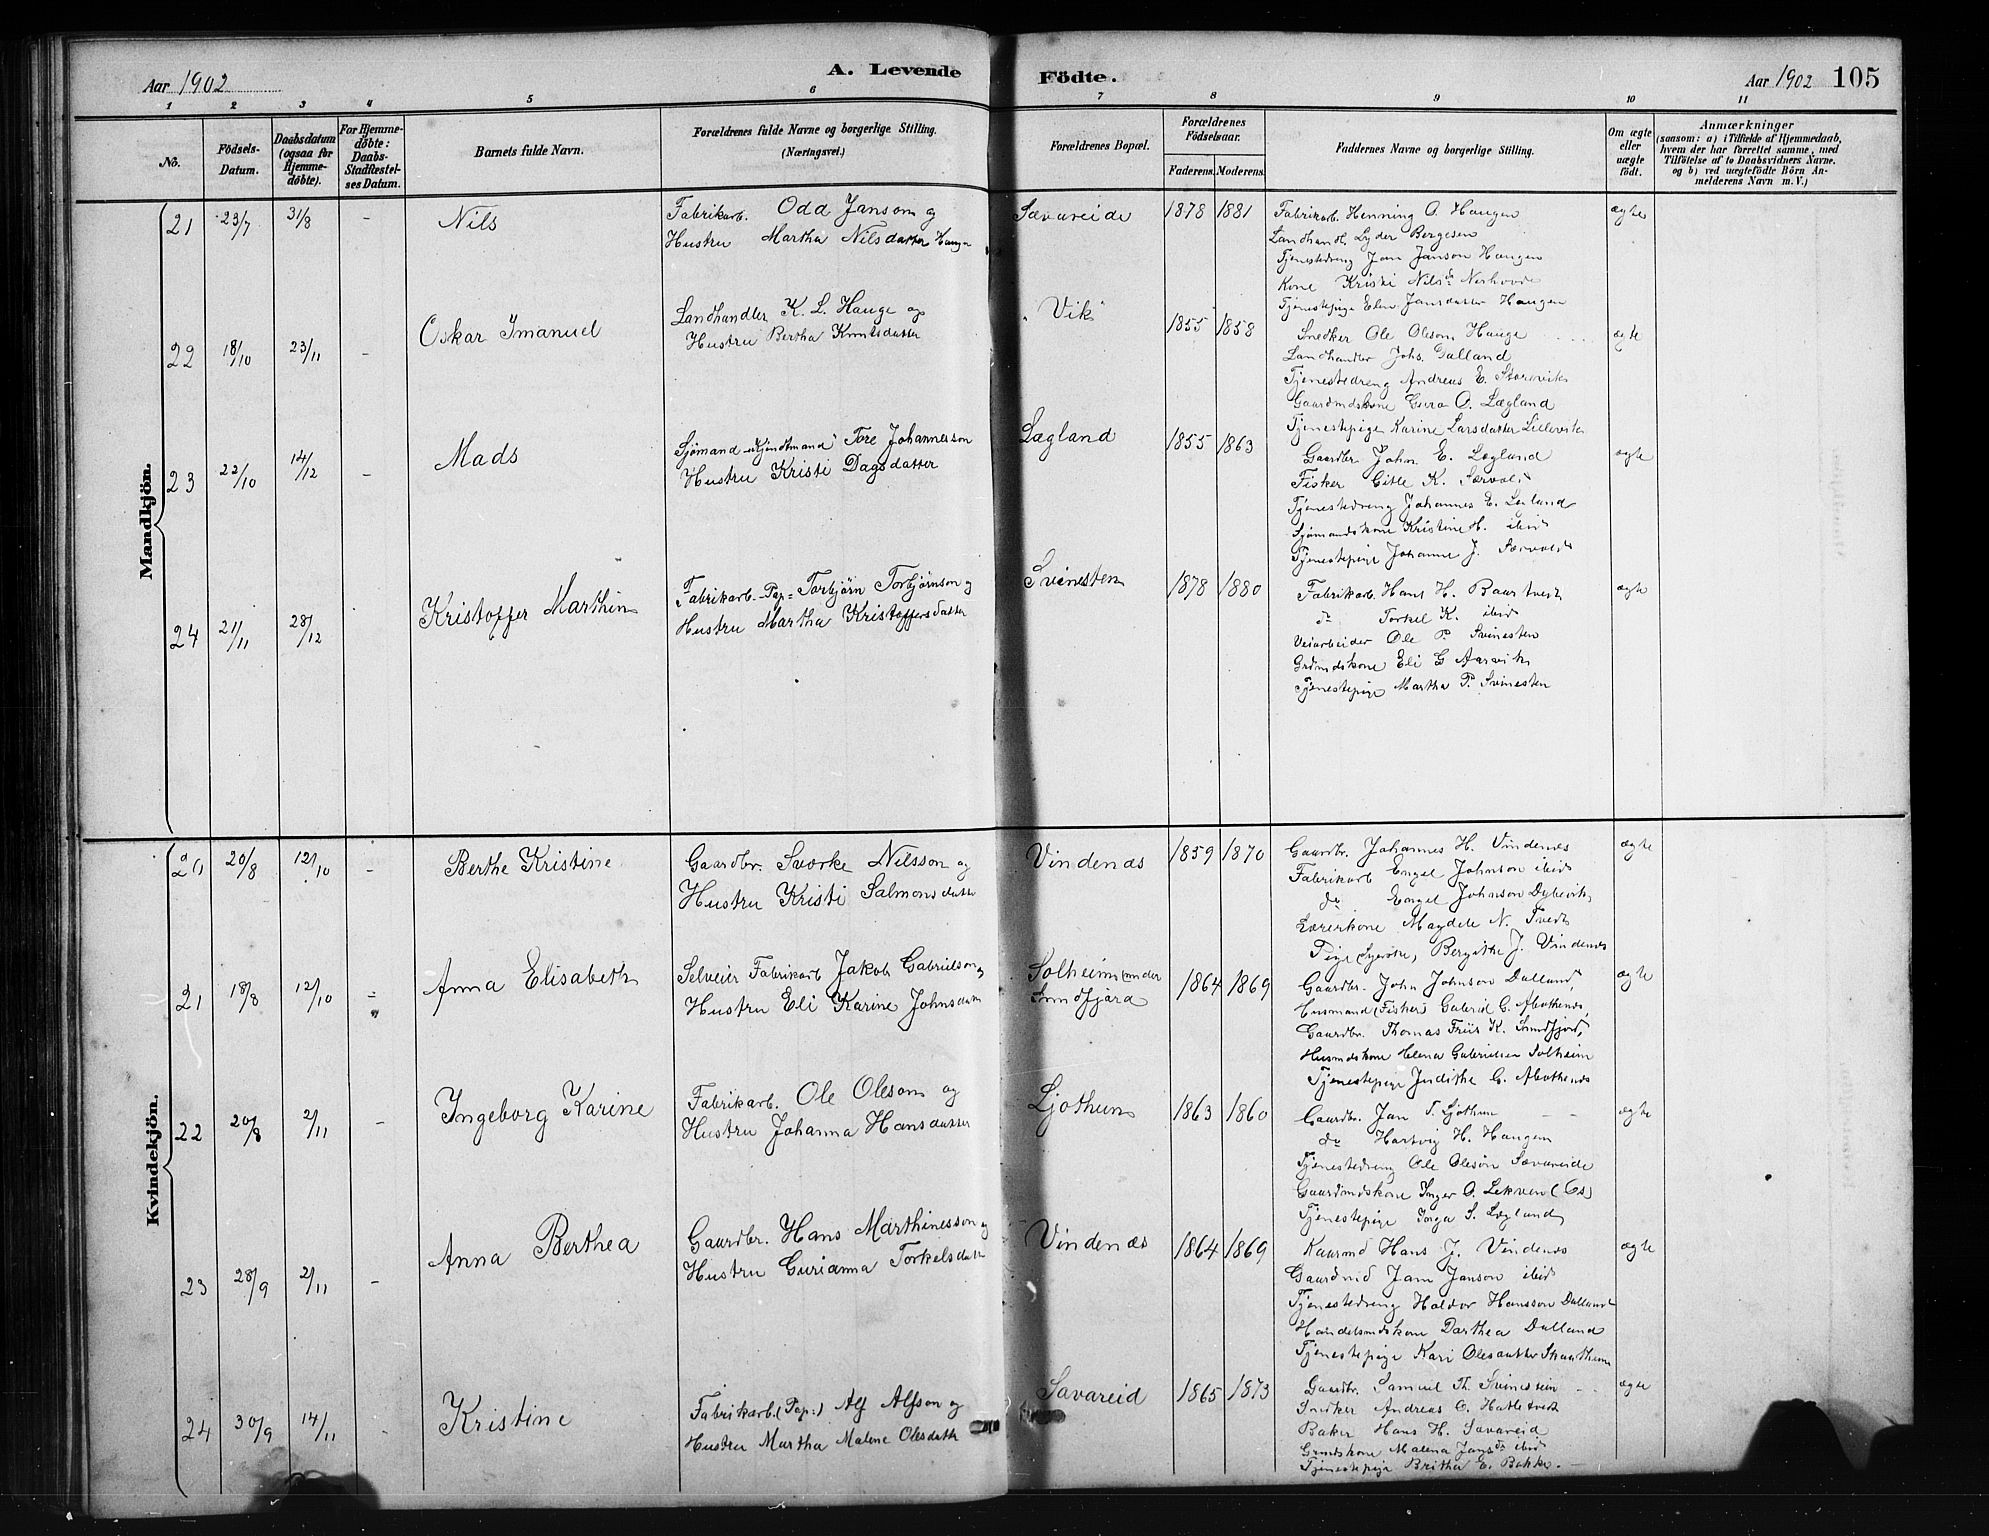 Aar 1902
A. Levende
Födte.
Aar 1902 105
1 2 3 4 5 6 7 8 9 10 11
No.
Födsels-Datum.
Daabsdatum (ogsaa for Hjemme-döbte).
For Hjemme-döbte: Daabs-Stadfestel-ses Datum.
Barnets fulde Navn.
Forældrenes fulde Navne og borgerlige Stilling.
(Næringsvei.)
Forældrenes Bopæl.
Forældrenes Födselsaar.
Faderens. Moderens.
Faddernes Navne og borgerlige Stilling.
Om ægte eller uægte födt.
Anmærkninger
(saasom: a) i Tilfælde af Hjemmedaab,
hvem der har forrettet samme, med
Tilföielse af to Daabsvidners Navne,
og b) ved uægtefödte Börn An-
melderens Navn m. V.)
Mandkjön.
21 23/7 31/8 - Nils
Fabrikarb. Odd Janson og
Hustru Martha Nilsdatter Haugen
Sævareide 1878 1881
Fabrikarb. Henning O. Haugen
Landhandl. Lyder Bergesen
Tjenestedreng Jan Janson Haugen
Kone Kristi Nilsd.
Tjenestepige Elen Jansdatter Haugen
ægte
22 18/10 23/11 - Oskar Imanuel
Landhandler K. L. Hauge og
Hustru Bertha Knutsdatter
Vik 1855 1858
Snedker Ole Oleson Hauge
Landhandler Johs. Dalland
Tjenestedreng Andreas E. Storevik
Gaardmdskone Guro O. Lægland
Tjenestepige Karine Larsdatter Lillevik
ægte
23 22/10 14/12 - Mads
Sjømand Tore Johannesson
Hustru Kristi Dagsdatter
Lægland 1855 1863
Gaardbr. John E. Lægland
Fisker Gitle K. Særvold
Tjenestedreng Johannes E. Leland
Sjømandskone Kristine H. ibid
Tjenestepige Johanne J. Særvold
ægte
24 21/11 28/12 Kristoffer Marthin
Fabrikarb. Pap= Torbjørn Torbjørnson og
Hustru Martha Kristoffersdatter
Svinesten 1878 1880
Fabrikarb. Hans H. Baartvedt
do Torkel K. ibid
Veiarbeider Ole P. Svinesten
Grdmdskone Eli G Aarvik
Tjenestepige Martha P. Svinesten
ægte
Kvindekjön.
20 20/8 12/10 - Berthe Kristine
Gaardbr. Sværke Nilsson og
Hustru Kristi Salmonsdatter
Vindenæs 1859 1870
Gaardbr. Johannes H. Vindenæs
Fabrikarb Engel Johnson ibid
do Engel Johnson Dybevik
Lærerkone Magdele N. Tvedt
Pige (syerske) Bergithe J. Vindenæs
ægte
21 18/8 12/10 Anna Elisabeth
Selveier Fabrikarb Jakob Gabrielson og
Hustru Eli Karine Johnsdatter
Solheim (under
Smdfjora 1864 1869
Gaardbr. John Johnson Dalland,
Husmand (Fisker) Gabriel G. Abothenes,
Gaardbr. Thomas Friis K.
Husmdskone Helena Gabrielsen Solheim
Tjenestepige Judithe G. Abothenes
ægte
22 20/8 2/11 - Ingeborg Karine
Fabrikarb. Ole Oleson og
Hustru Johanna Hansdatter
Ljothun 1863 1860
Gaardbr. Jan T. Ljothun
do Hartvig H. Haugen
Tjenestedreng Ole Oleson Sævareide
Gaardmdskone Inger O. Lekven (Os)
Tjenestepige Inga S. Lægland
ægte
23 28/9 2/11 - Anna Berthea
Gaardbr. Hans Marthinesson og
Hustru Gurianna Torkelsdatter
Vindenæs 1864 1869
Kaarmd Hans J. Vindenæs
Gaardmd Jan Janson ibid
Tjenestedreng Haldor Hansson Dalland
Handelsmdskone Darthea Dalland
Tjenestepige Kari Olesdatter
ægte
24 30/9 14/11 - Kristine
Fabrikarb. (Pap:) Alf Alfson og
Hustru Martha Malene Olesdatter
Savareid 1865 1873
Gaardbr. Samuel Th. Svinesten
Snedker Andreas O. Hatletvedt
Baker Hans H. Savareid
Grmdskone Malena Jansd. ibid
Tjenestepige Britha E. Bakke.
ægte